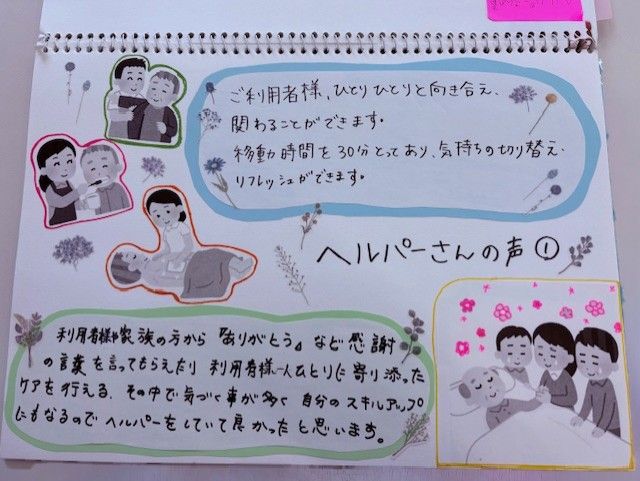 ご利用者様、ひとりひとりと向き合え、
関わることができます。
移動時間を30分とってあり、気持ちの切り替え、
リフレッシュができます。
ヘルパーさんの声①
利用者様や家族の方から『ありがとう』など感謝
の言葉を言ってもらえたり 利用者様一人ひとりに寄り添った
ケアを行える、その中で気づく事が多く 自分のスキルアップ
にもなるので ヘルパーをしていて良かったと思います。